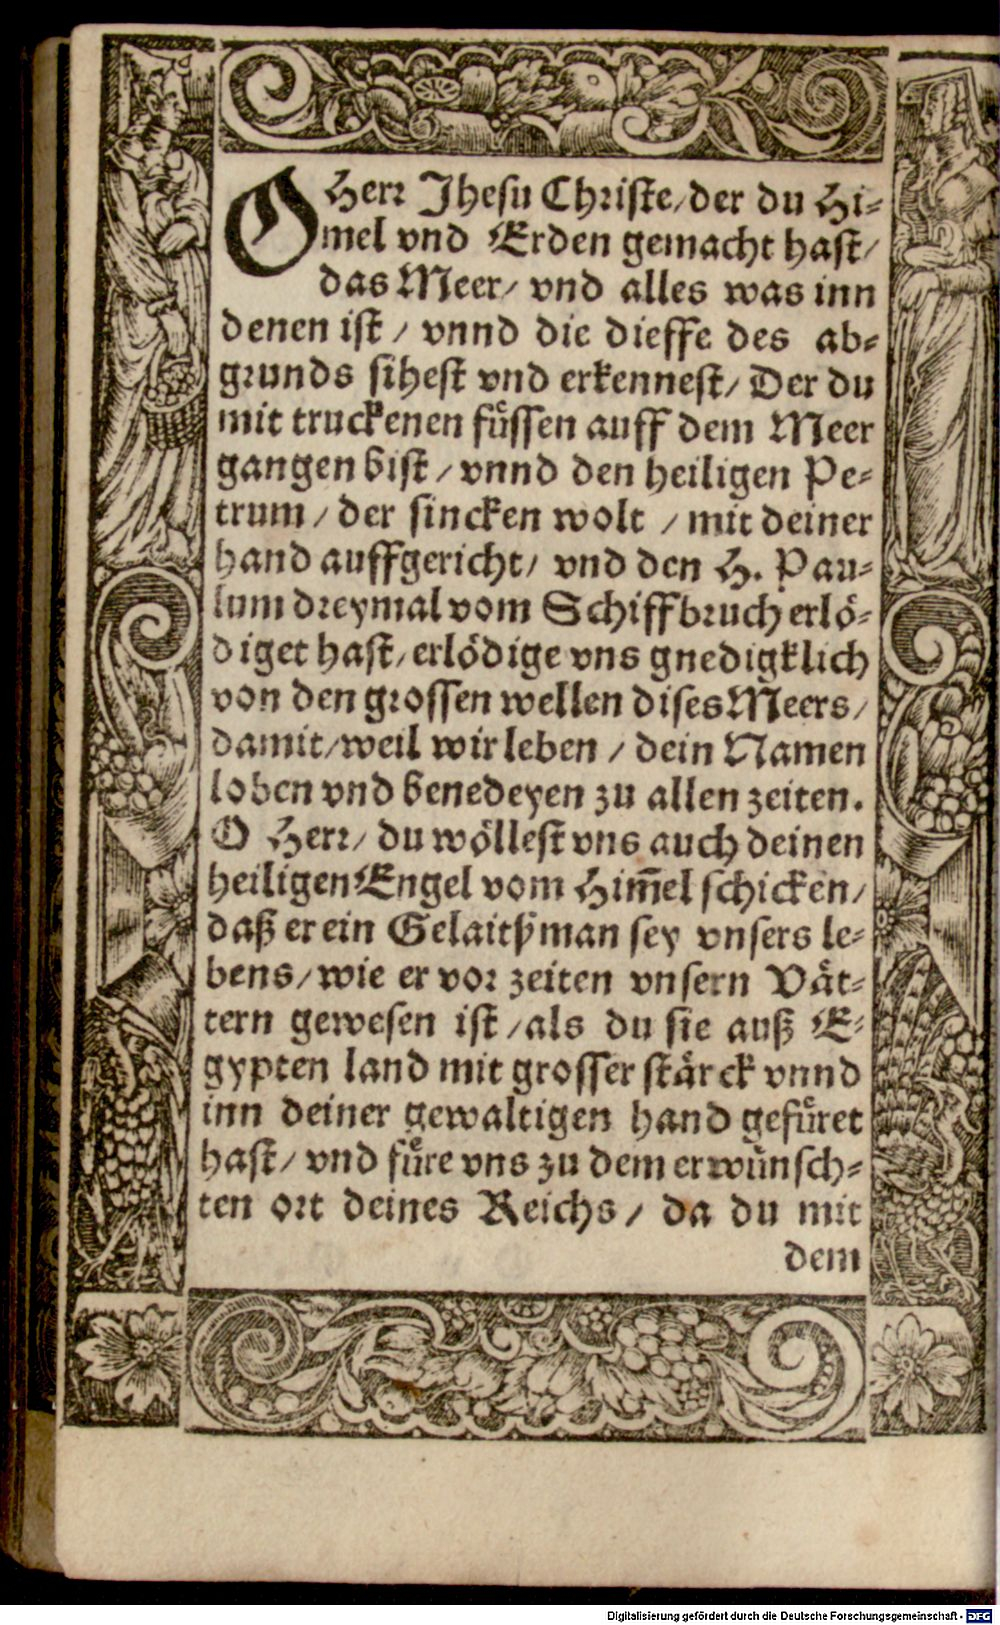 O Herr Jhesu Christe/ der du Hi-
mel vnd Erden gemacht hast/
das Meer/ vnd alles was inn
denen ist / vnnd die dieffe des ab-
grunds sihest vnd erkennest/ Der du
mit truckenen fuͤssen auff dem Meer
gangen bist / vnnd den heiligen Pe-
trum / der sincken wolt / mit deiner
hand auffgericht/ vnd den H. Pau-
lum dreymal vom Schiffbruch erloͤ-
diget hast/ erloͤdige vns gnedigklich
von den grossen wellen dises Meers/
damit/ weil wir leben / dein Namen
loben vnd benedeyen zu allen zeiten.
O Herr/ du woͤllest vns auch deinen
heiligen Engel vom Him̃el schicken/
daß er ein Gelaitßman sey vnsers le-
bens/ wie er vor zeiten vnsern Vaͤt-
tern gewesen ist / als du sie auß E-
gypten land mit grosser staͤrck vnnd
inn deiner gewaltigen hand gefuͤret
hast/ vnd fuͤre vns zu dem erwuͤnsch-
ten ort deines Reichs / da du mit
dem
Digitalisierung gefördert durch die Deutsche Forschungsgemeinschaft - DFG